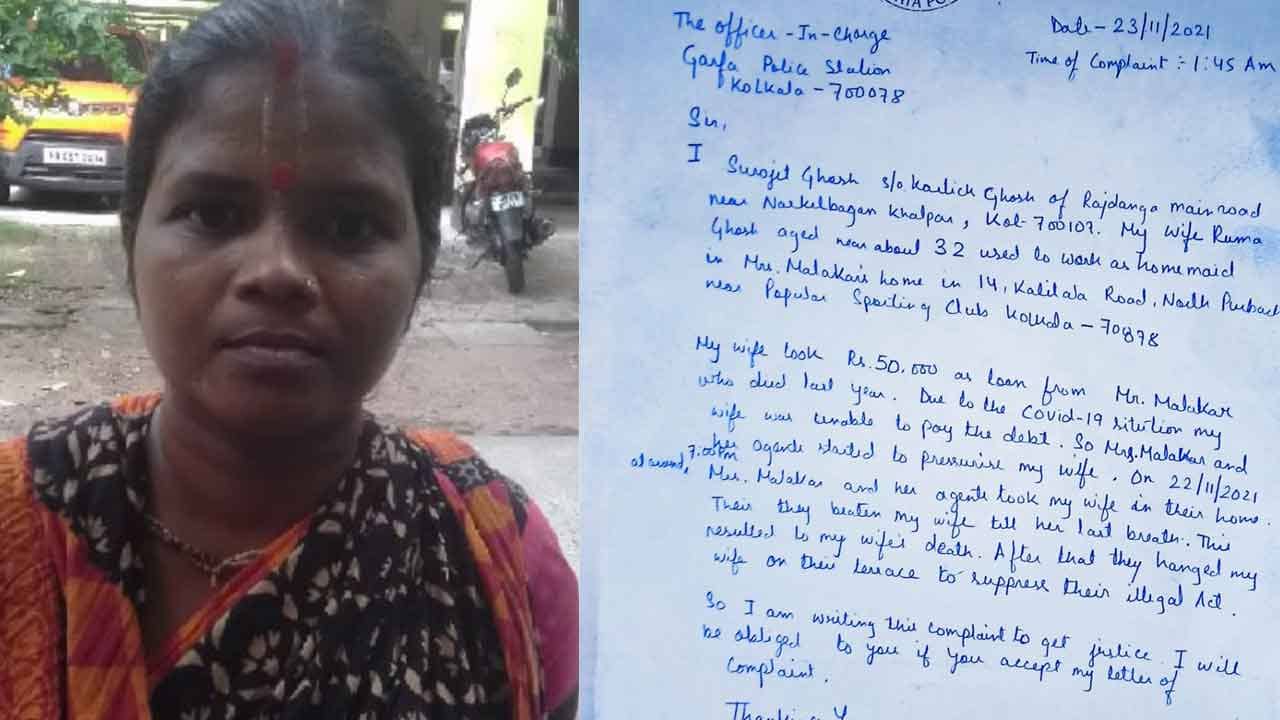 The officer-In-Charge
Garfa Police Station
Kolkala - 700078
Date - 23/11/2021
Time of Complaint :- 1:45 Am
Sir,
I Surojit Ghosh s/o. Kartick Ghosh of Rajdanga main road
near Narkelbagan Khalpar, Kol- 700107. My Wife Ruma
Ghosh aged near about 32 used to work as homemaid
in Mrs. Malakar's home in 14, Kalitala Road, North Purbach
near Popular Sporting Club Kolkata - 70878
My wife took Rs. 50,000 as loan from Mr. Malakar
who died last year. Due to the Covid-19 sitution my
wife was unable to pay the debt. So Mrs. Malakar and
her agents started to pressurise my wife. On 22/11/2021
at around, 7:00 Pm
Mrs. Malakar and her agents took my wife in their home.
Their they beaten my wife till her last breath. This
resulted to my wife's death. After that they hanged my
wife on their terrace to suppress their illegal Act.
So I am writing this complaint to get justice. I will
be obliged to you if you accept my letter of
Complaint.